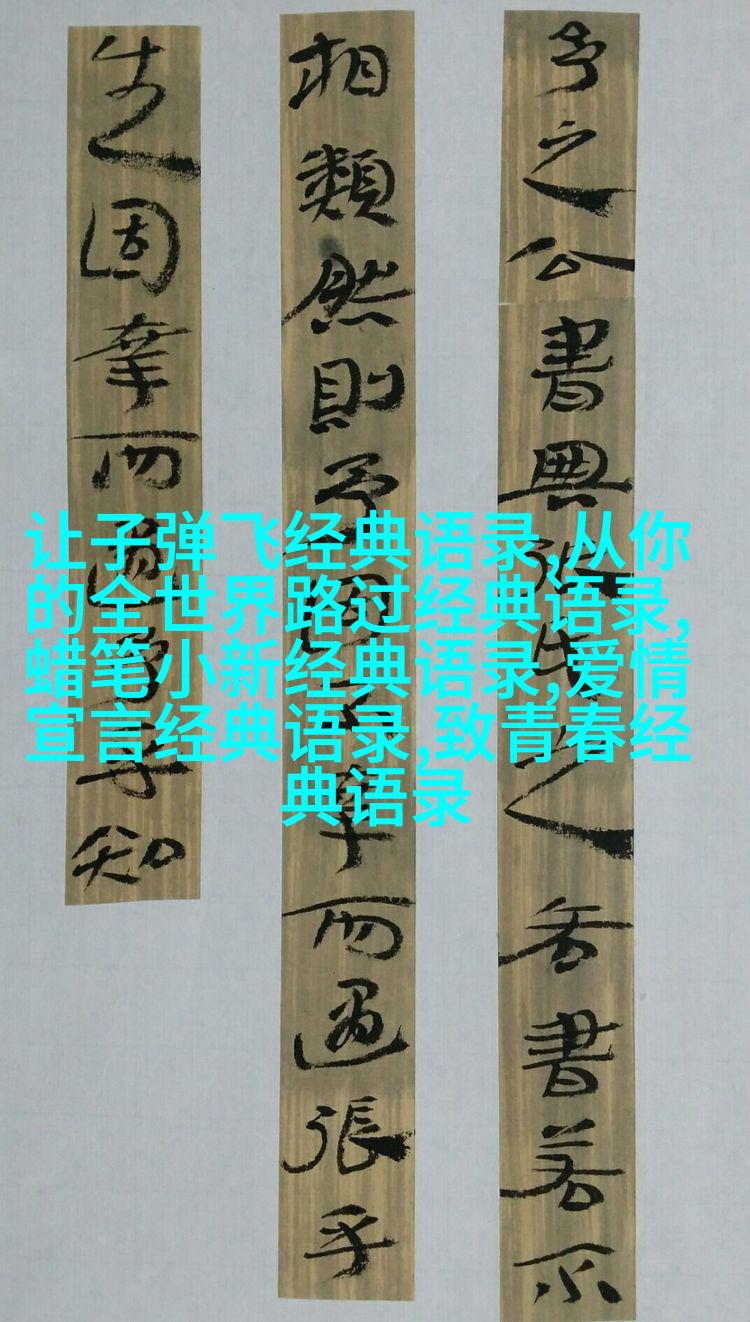 予之公書與張氏之吝書若不
相類然則予固不幸而遇張乎
生固幸而遇予乎知
让子弹飞经典语录,从你
的全世界路过经典语录,
蜡笔小新经典语录,爱情
宣言经典语录,致青春经
典语录